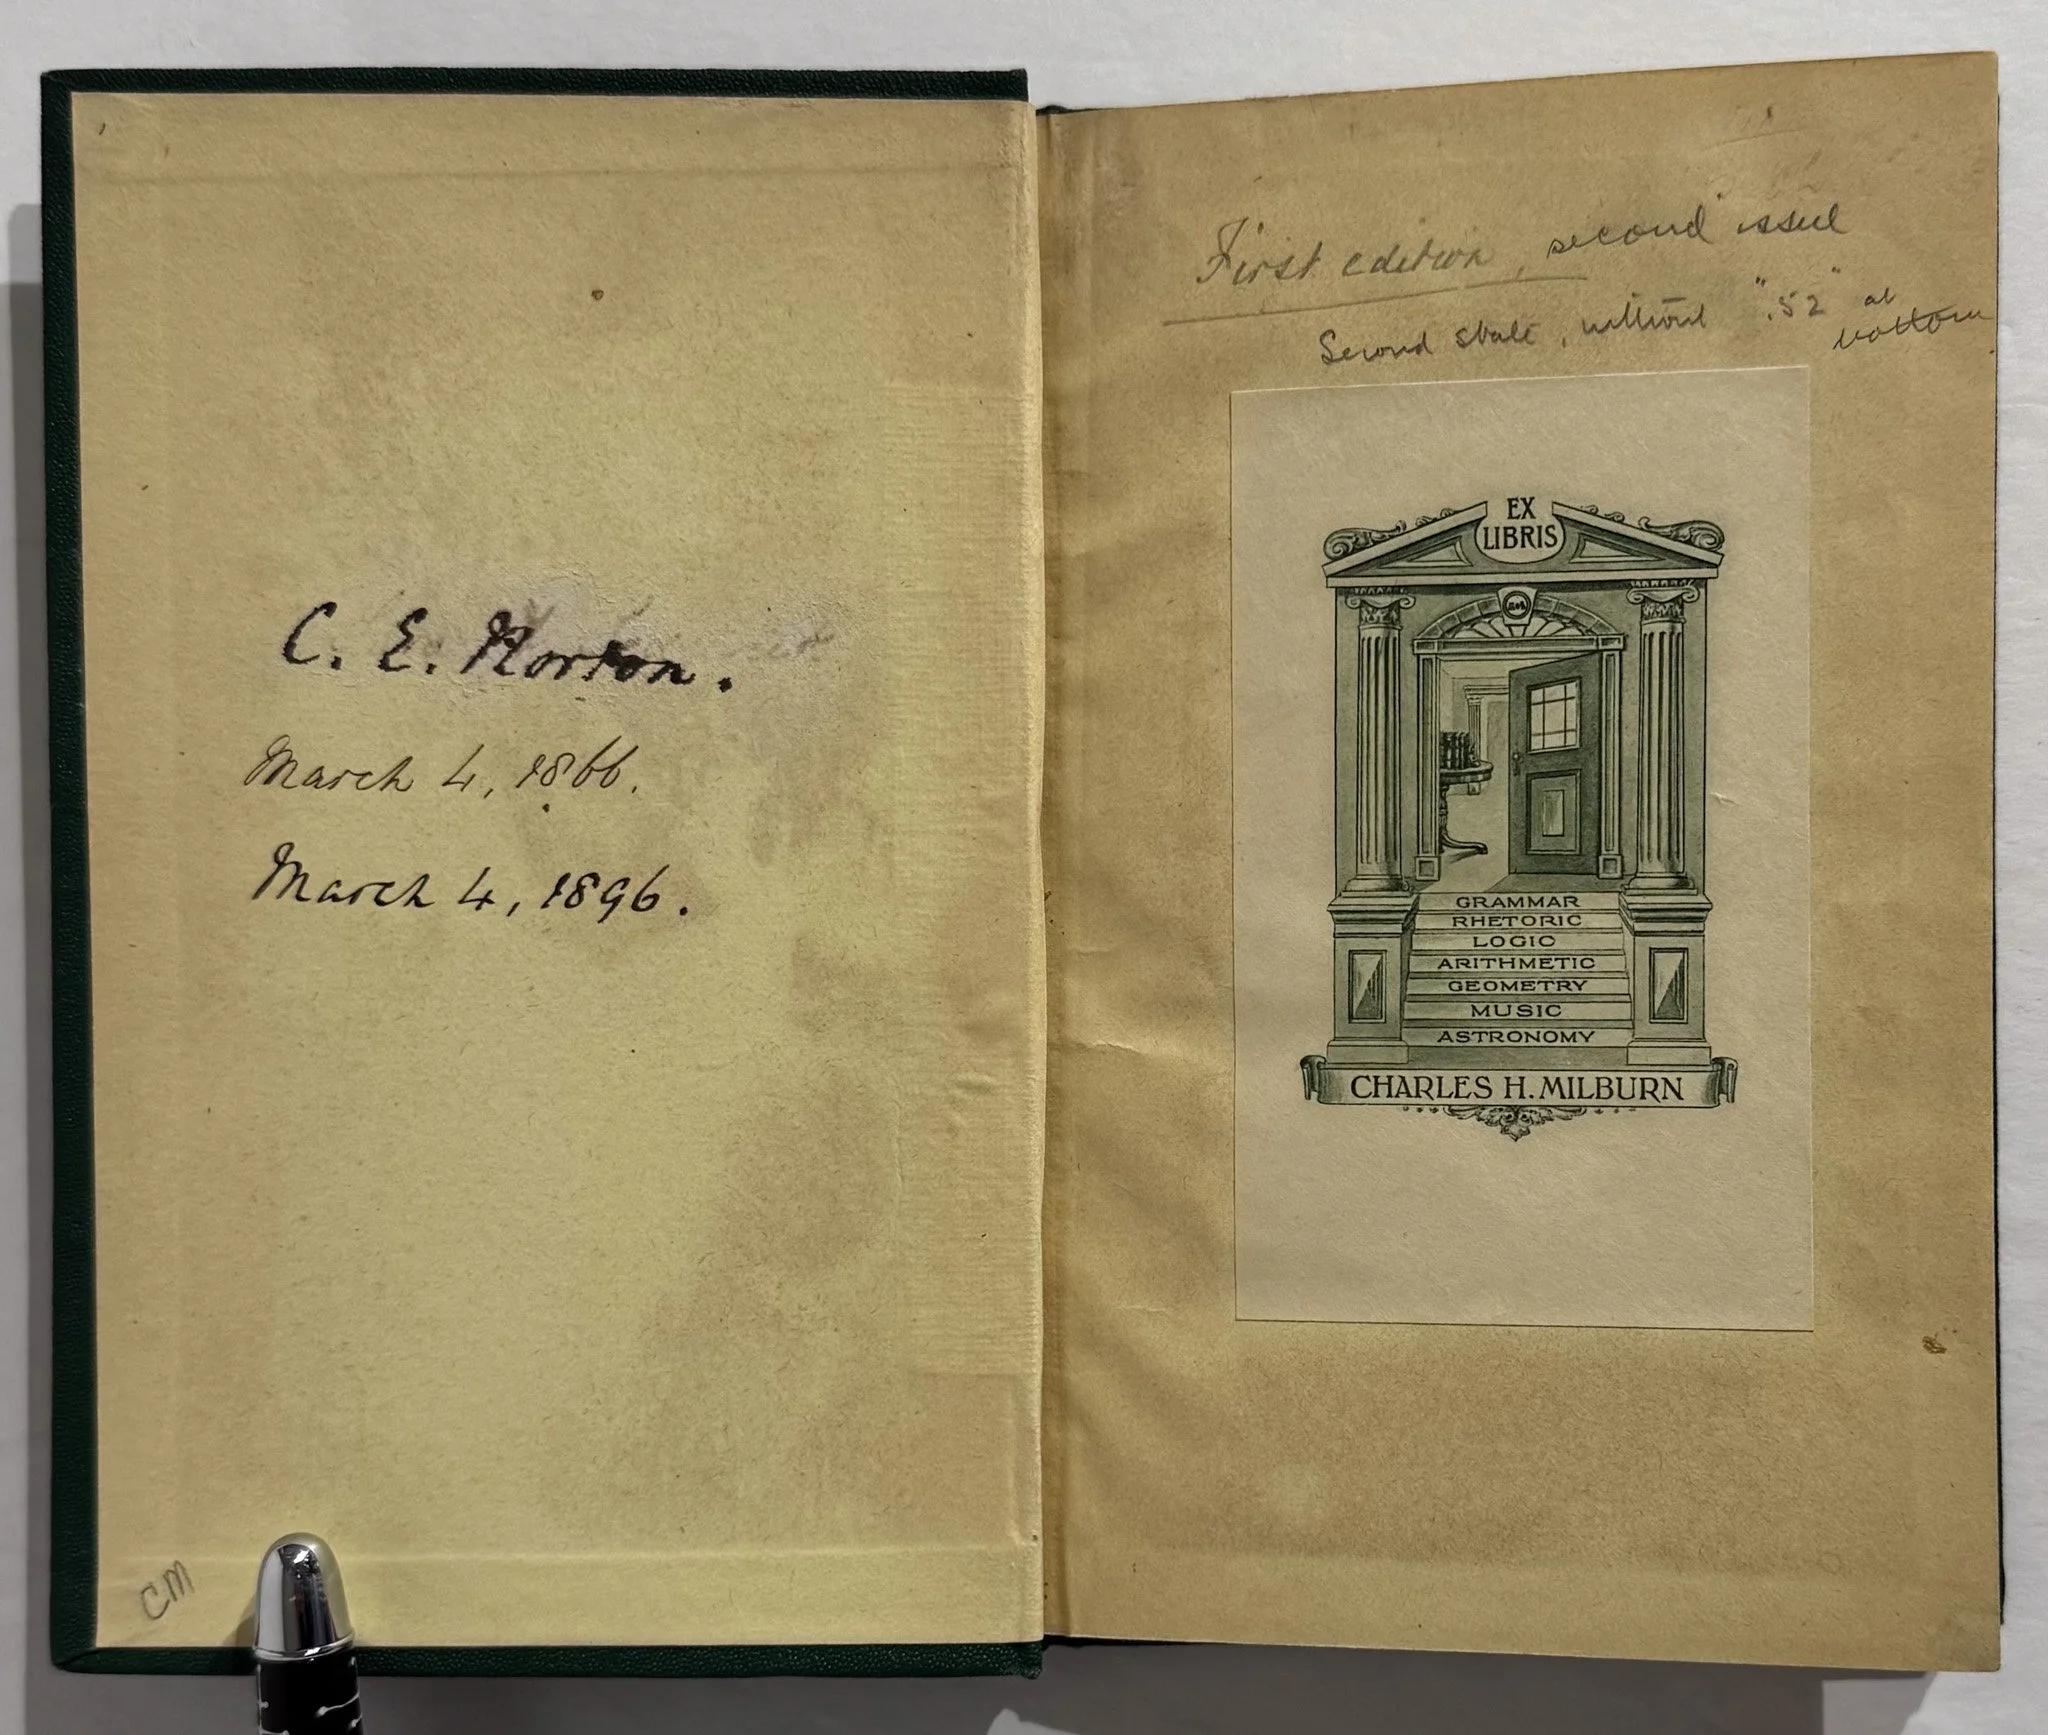 C. E. Norton.
March 4, 1866.
March 4, 1896.
CM
First edition, second issue
Second state, without ".52" at
bottom
EX
LIBRIS
GRAMMAR
RHETORIC
LOGIC
ARITHMETIC
GEOMETRY
MUSIC
ASTRONOMY
CHARLES H. MILBURN